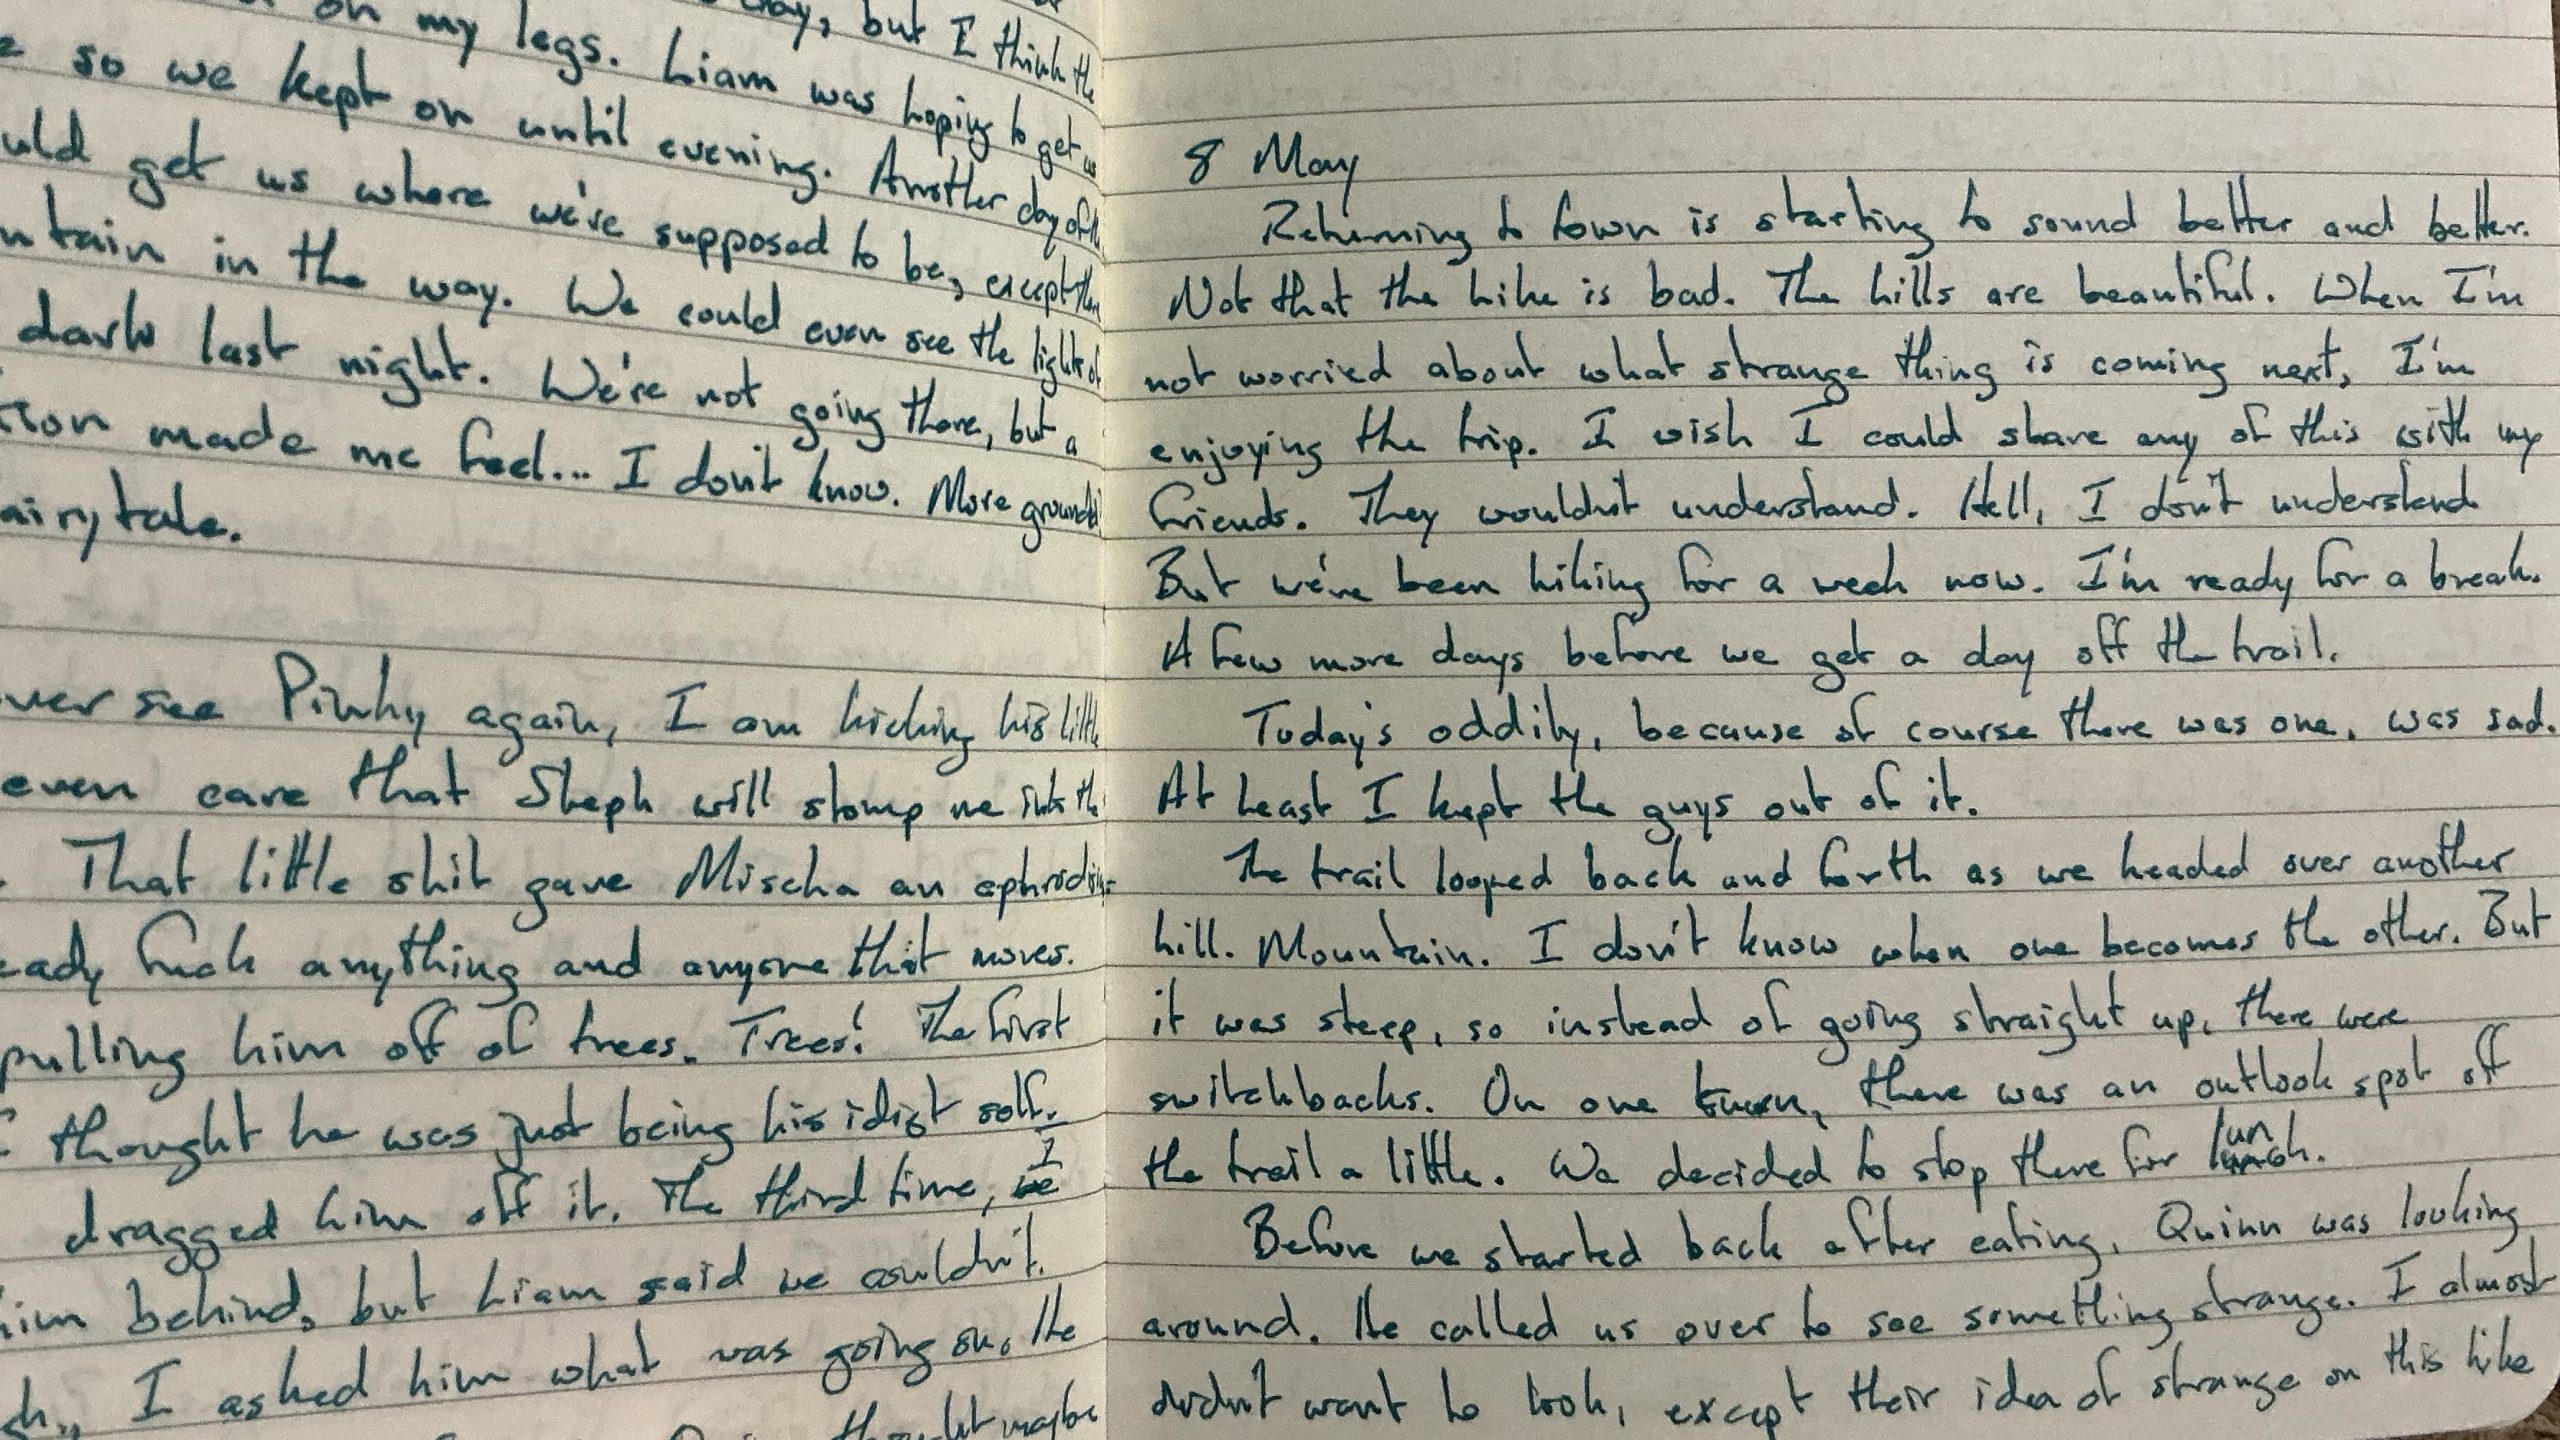 on my legs.
day, but I think the
so we kept on until evening. Liam was hoping to get us
uld get us where we're supposed to be, except there Another day of
ntain in the way. We could even see the lights of
dark last night. We're not going there, but a
tion made me feel... I don't know. More grounded
airytale.
ver see Pinky again, I am kicking his little
even care that Steph will stomp me into the
That little shit gave Mischa an aphrodisi-
eady fuck anything and anyone that moves.
pulling him off of trees. Trees! The first
I thought he was just being his idiot self.
dragged him off it. The third time, I
him behind, but Liam said we couldn't.
I asked him what was going on. He
thought maybe
8 May
Returning to town is starting to sound better and better.
Not that the hike is bad. The hills are beautiful. When I'm
not worried about what strange thing is coming next, I'm
enjoying the trip. I wish I could share any of this with my
friends. They wouldn't understand. Hell, I don't understand
But we've been hiking for a week now. I'm ready for a break.
A few more days before we get a day off the trail.
Today's oddity, because of course there was one, was sad.
At least I kept the guys out of it.
The trail looped back and forth as we headed over another
hill. Mountain. I don't know when one becomes the other. But
it was steep, so instead of going straight up, there were
switchbacks. On one turn, there was an outlook spot off
the trail a little. We decided to stop there for lunch.
Before we started back after eating, Quinn was looking
around. He called us over to see something strange. I almost
didn't want to look, except their idea of strange on this hike